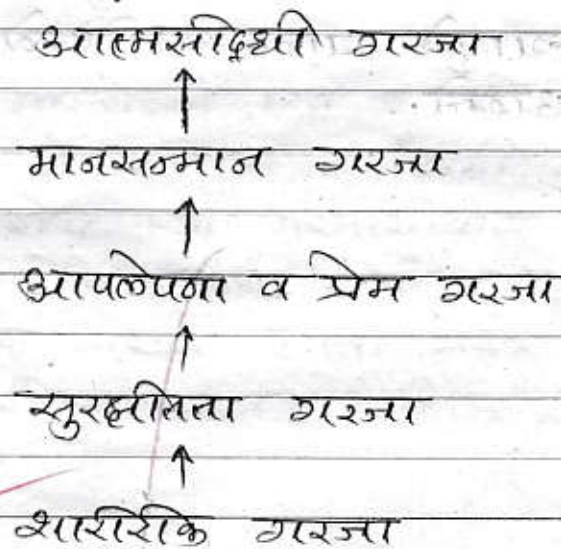 आत्मसिद्धी गरजा
↑
मानसन्मान गरजा
↑
आपलेपणा व प्रेम गरजा
↑
सुरक्षीतता गरजा
↑
शारीरीक गरजा